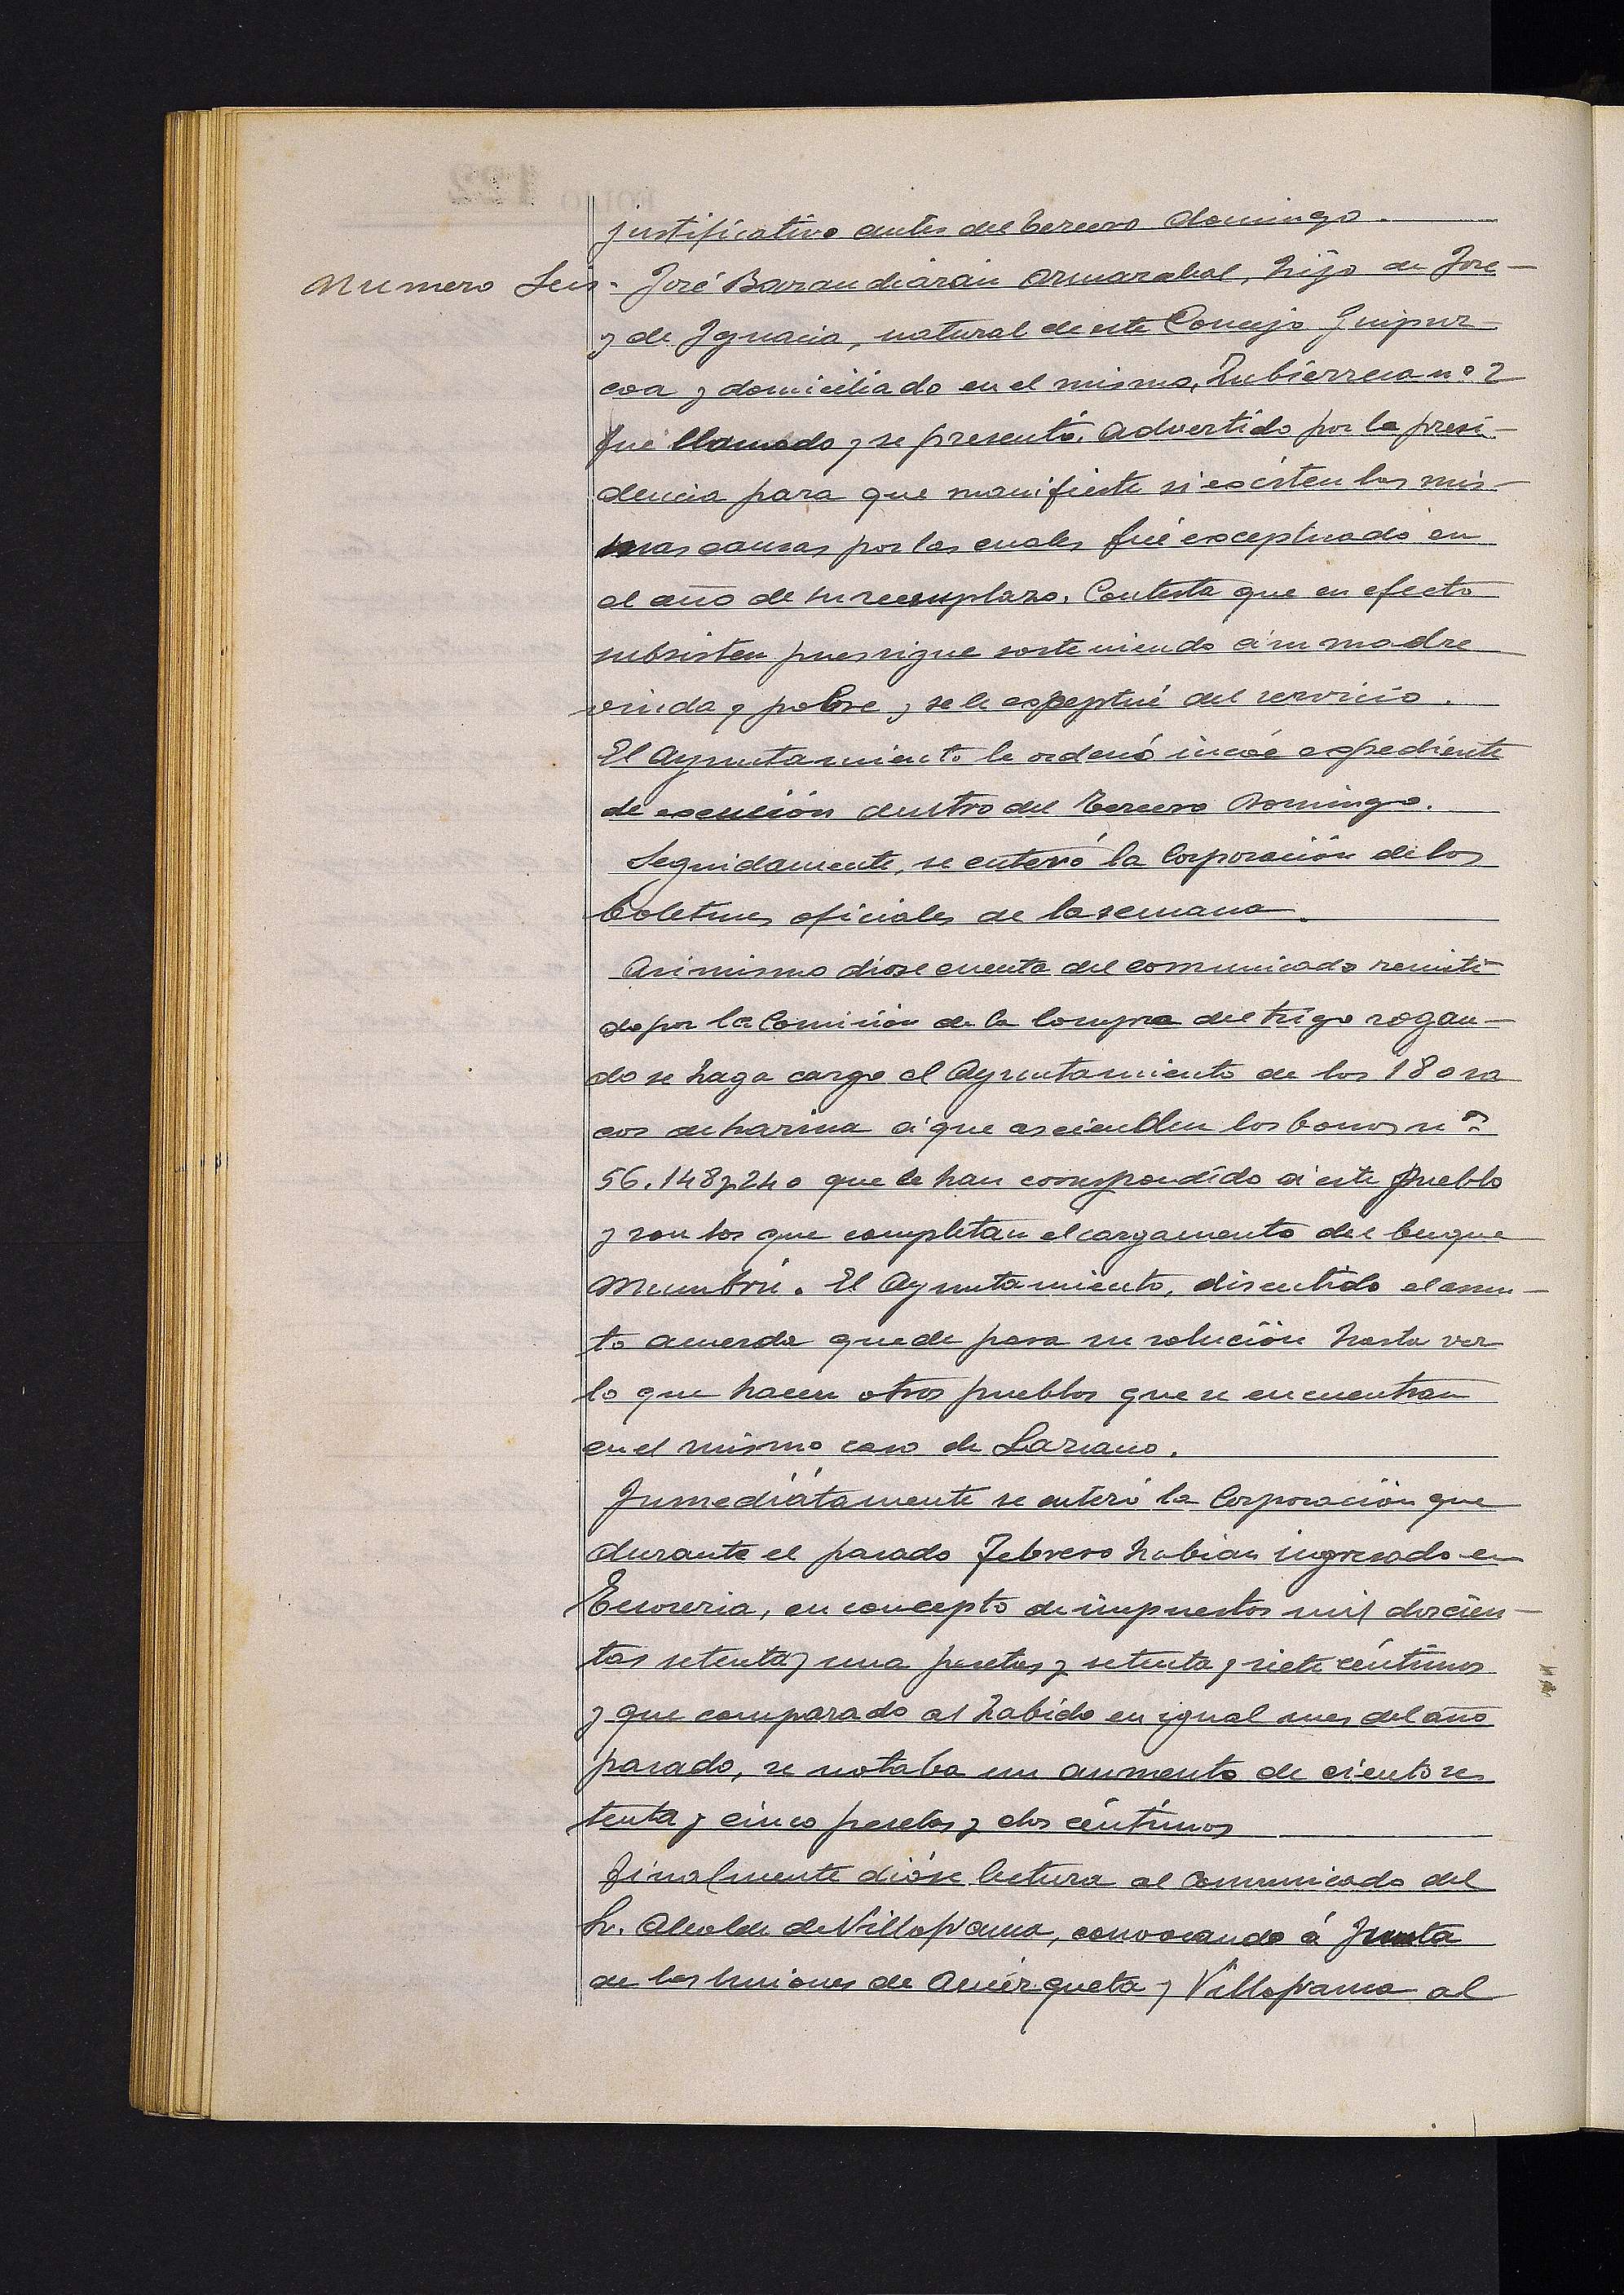 justificativo antes del tercero domingo.
Numero Seis - José Barandiarán Armarabal, hijo de José
y de Ignacia, natural de este Concejo Guipuz-
coa y domiciliado en el mismo, Zubierreca nº 2
fué llamado y se presentó. Advertido por la presi-
dencia para que manifieste si existen las mis-
mas causas por las cuales fué exceptuado en
el año de su reemplazo. Contesta que en efecto
subsisten pues sigue sosteniendo á su madre
viuda y pobre y se le exceptué del servicio.
El Ayuntamiento le ordenó incoe expediente
de exención dentro del tercero Domingo.
Seguidamente, se enteró la Corporación de los
boletines oficiales de la semana.
Asimismo dióse cuenta del comunicado remiti-
do por la Comisión de la compra del trigo rogan-
do se haga cargo el Ayuntamiento de los 180 sa
cos de harina á que ascienden los bonos nos
56. 148 y 240 que le han correspondido á este pueblo
y son los que completan el cargamento del buque
Mumbrú. El Ayuntamiento, discutido el asun-
to acuerda quede para su solución hasta ver
lo que hacen otros pueblos que se encuentran
en el mismo caso de Lazcano.
Inmediátamente se enteró la Corporación que
durante el pasado Febrero habian ingresado en
Tesoreria, en concepto de impuestos mil doscien-
tas setenta y una pesetas y setenta y siete céntimos
y que comparado al habido en igual mes del año
pasado, se notaba un aumento de ciento se
tenta y cinco pesetas y dos céntimos
Finalmente dióse lectura al comunicado del
Sr. Alcalde de Villafranca, convocando á Junta
de las Uniones de Amézqueta y Villafranca al